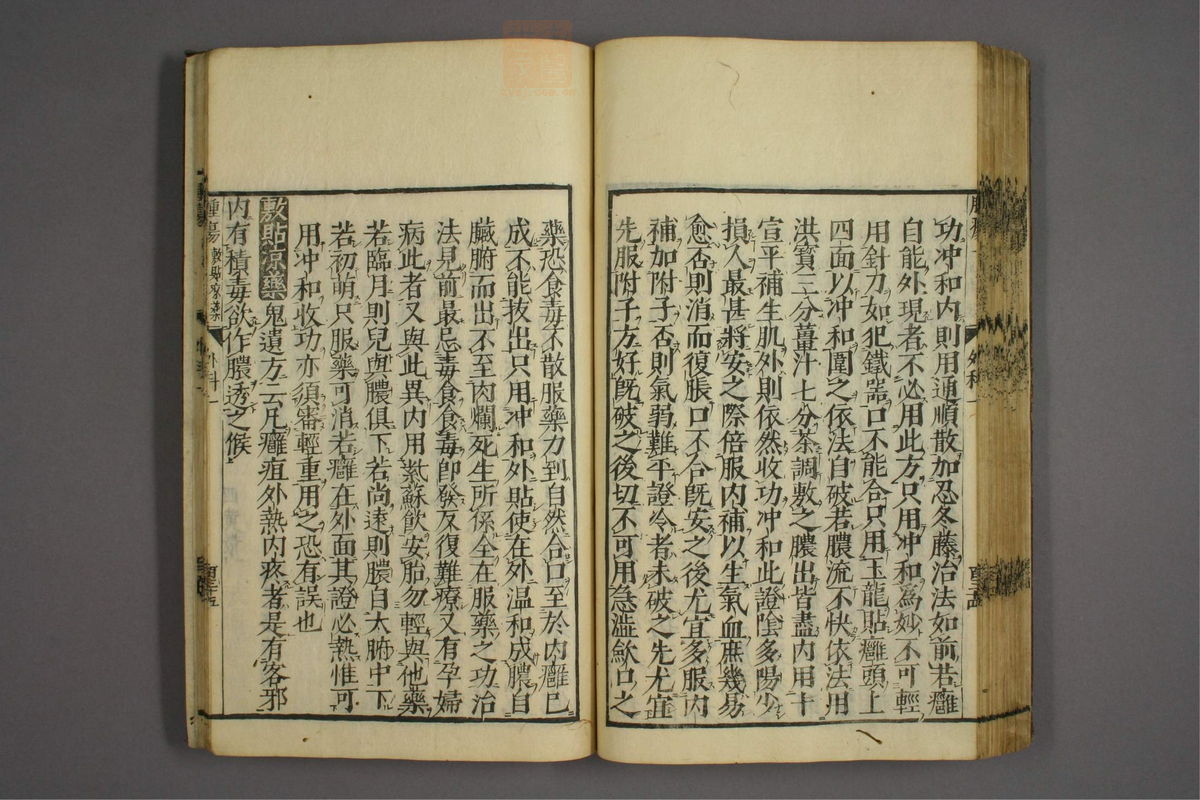 功冲和内則用通順散加忍冬藤治法如前若癰
自能外現者不必用此方只用冲和爲妙不可輕
用針刀如犯鐵噐口不能合只用玉龍貼癰頭上
四面以冲和圍之依法自破若膿流不快依法用
洪寳三分薑汁七分茶調敷之膿出皆盡内用十
宣平補生肌外則依然收功冲和此證陰多陽少
損人最甚將安之際倍服内補以生氣血庶幾易
愈否則消而復脹口不合旣安之後尤宜多服内
補加附子否則氣弱難平證冷者未破之先尤宜
先服附子方好旣破之後切不可用急澁歛口之
藥恐食毒不散服藥力到自然合口至於内癰已
成不能抜出只用冲和外貼使在外温和成膿自
臟腑而出不至肉爛死生所係全在服藥之功治
法見前最忌毒食食毒卽發反復難療又有孕婦
病此者又與此異内用紫蘇飲安胎勿輕與他藥
若臨月則兒與膿俱下若尚遠則膿自大腑中下
若初萌只服藥可消若癰在外面其證必熱惟可
用冲和收功亦須審輕重用之恐有誤也
敷貼凉藥 鬼遺方云凡癰疽外熱内疼者是有客邪
内有積毒欲作膿透之候
腫瘍 敷貼凉藥 外科一